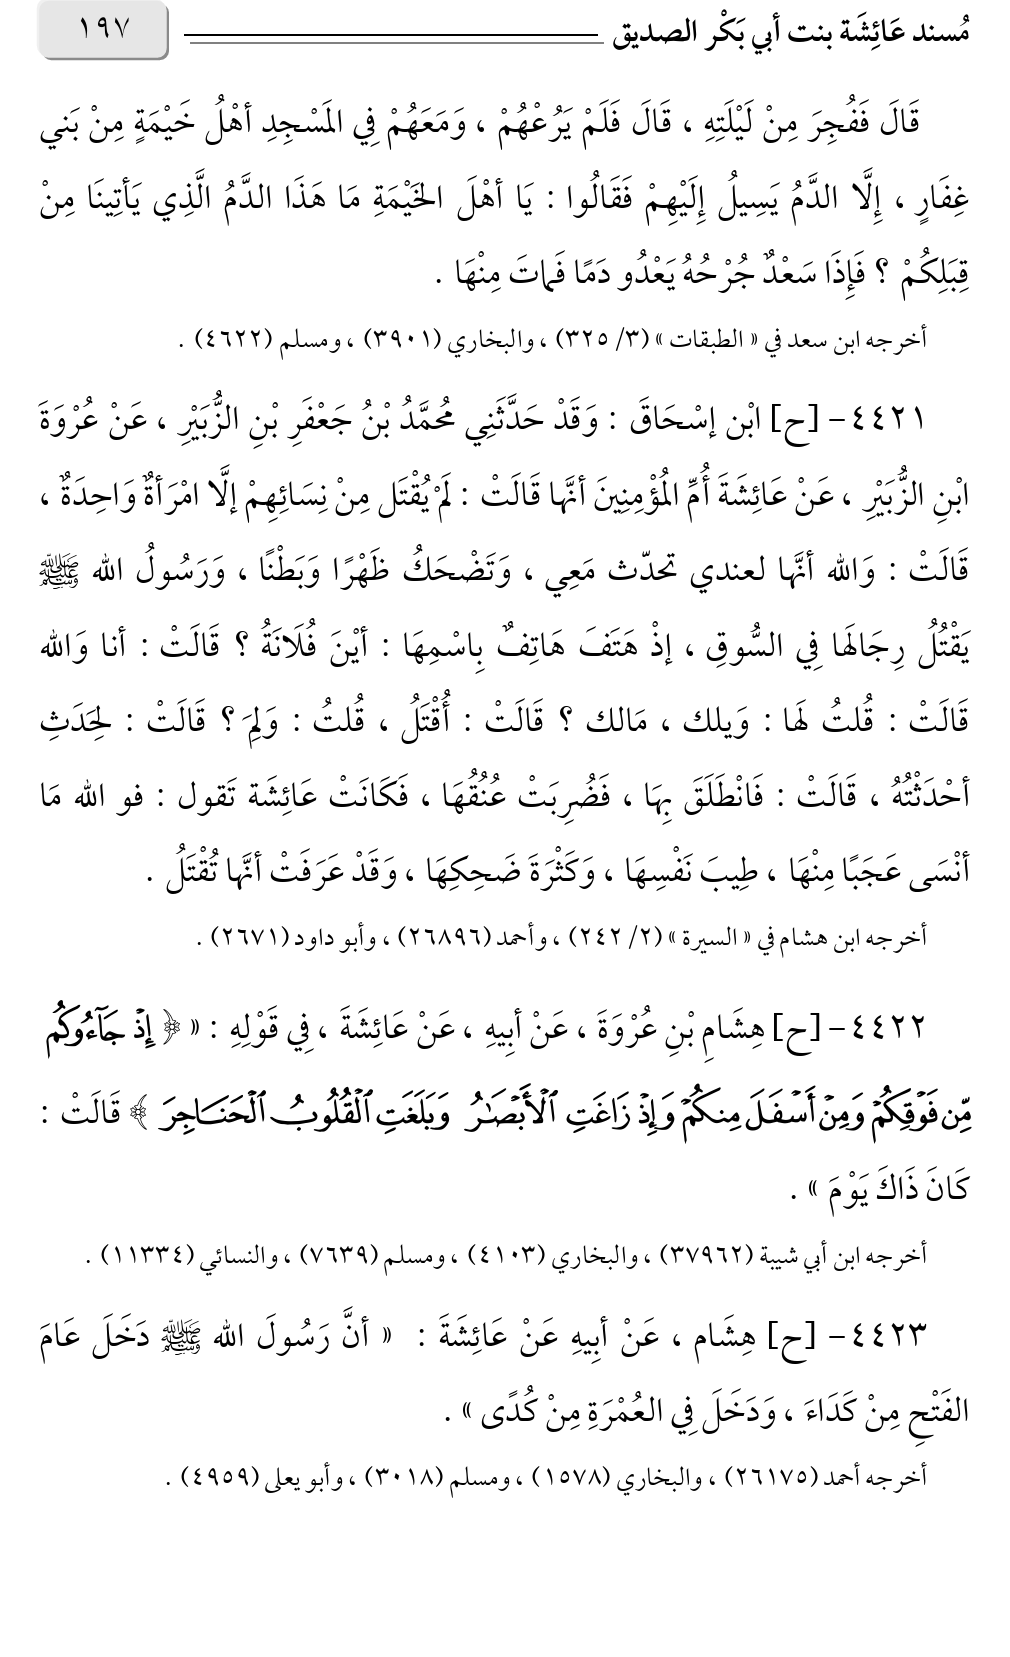 مُسند عَائِشَة بنت أبي بَكْر الصديق
١٩٧
قَالَ فَفُجِرَ مِنْ لَيْلَتِهِ ، قَالَ فَلَمْ يَرُعْهُمْ ، وَمَعَهُمْ فِي المَسْجِدِ أهْلُ خَيْمَةٍ مِنْ بَني
غِفَارٍ ، إِلَّا الدَّمُ يَسِيلُ إِلَيْهِمْ فَقَالُوا : يَا أهْلَ الخَيْمَةِ مَا هَذَا الدَّمُ الَّذِي يَأتِينَا مِنْ
قِبَلِكُمْ ؟ فَإِذَا سَعْدٌ جُرْحُهُ يَعْدُو دَمًا فَماتَ مِنْهَا .
أخرجه ابن سعد في « الطبقات » (٣/ ٣٢٥) ، والبخاري (٣٩٠١) ، ومسلم (٤٦٢٢) .
٤٤٢١- [ح] ابْن إسْحَاقَ : وَقَدْ حَدَّثَنِي مُحمَّدُ بْنُ جَعْفَرِ بْنِ الزُّبَيْرِ ، عَنْ عُرْوَةَ
ابْنِ الزُّبَيْرِ ، عَنْ عَائِشَةَ أُمِّ المُؤْمِنِينَ أنَّها قَالَتْ : لَمْ يُقْتَل مِنْ نِسَائِهِمْ إلَّا امْرَأةٌ وَاحِدَةٌ ،
قَالَتْ : وَالله أنَّها لعندي تحدّث مَعِي ، وَتَضْحَكُ ظَهْرًا وَبَطْنًا ، وَرَسُولُ الله ﷺ
يَقْتُلُ رِجَالَهَا فِي السُّوقِ ، إذْ هَتَفَ هَاتِفٌ بِاسْمِهَا : أيْنَ فُلَانَةُ ؟ قَالَتْ : أنا وَالله
قَالَتْ : قُلتُ لَها : وَيلك ، مَالك ؟ قَالَتْ : أُقْتَلُ ، قُلتُ : وَلِمَ ؟ قَالَتْ : لِحَدَثِ
أحْدَثْتُهُ ، قَالَتْ : فَانْطَلَقَ بِهَا ، فَضُرِبَتْ عُنُقُهَا ، فَكَانَتْ عَائِشَة تَقول : فو الله مَا
أنْسَى عَجَبًا مِنْهَا ، طِيبَ نَفْسِهَا ، وَكَثْرَةَ ضَحِكِهَا ، وَقَدْ عَرَفَتْ أنَّها تُقْتَلُ .
أخرجه ابن هشام في « السيرة » (٢/ ٢٤٢) ، وأحمد (٢٦٨٩٦) ، وأبو داود (٢٦٧١) .
٤٤٢٢- [ح] هِشَامِ بْنِ عُرْوَةَ ، عَنْ أبِيهِ ، عَنْ عَائِشَةَ ، فِي قَوْلِهِ : « ﴿ إِذْ جَآءُوكُم
مِّن فَوْقِكُمْ وَمِنْ أَسْفَلَ مِنكُمْ وَإِذْ زَاغَتِ ٱلْأَبْصَٰرُ وَبَلَغَتِ ٱلْقُلُوبُ ٱلْحَنَاجِرَ ﴾ قَالَتْ :
كَانَ ذَاكَ يَوْمَ » .
أخرجه ابن أبي شيبة (٣٧٩٦٢) ، والبخاري (٤١٠٣) ، ومسلم (٧٦٣٩) ، والنسائي (١١٣٣٤) .
٤٤٢٣- [ح] هِشَام ، عَنْ أبِيهِ عَنْ عَائِشَةَ : « أنَّ رَسُولَ الله ﷺ دَخَلَ عَامَ
الفَتْحِ مِنْ كَدَاءَ ، وَدَخَلَ فِي العُمْرَةِ مِنْ كُدًى » .
أخرجه أحمد (٢٦١٧٥) ، والبخاري (١٥٧٨) ، ومسلم (٣٠١٨) ، وأبو يعلى (٤٩٥٩) .